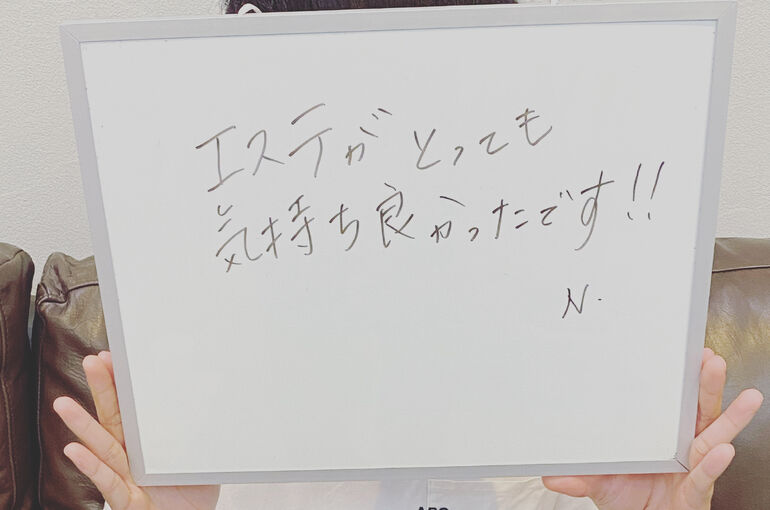 エステがとっても
気持ち良かったです!!
N.